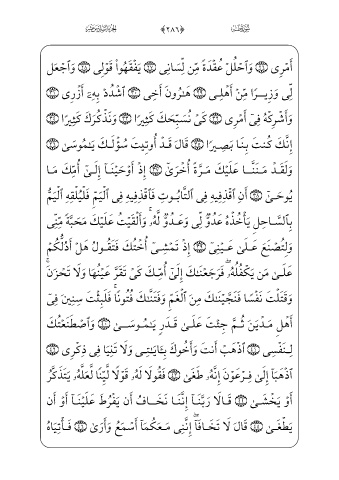 سُورَةُ طٰهٰ ﴿٢٨٦﴾ الجزء السادس عشر
أَمْرِى ۝٢٦ وَٱحْلُلْ عُقْدَةً مِّن لِّسَانِى ۝٢٧ يَفْقَهُوا۟ قَوْلِى ۝٢٨ وَٱجْعَل
لِّى وَزِيرًا مِّنْ أَهْلِى ۝٢٩ هَـٰرُونَ أَخِى ۝٣٠ ٱشْدُدْ بِهِۦٓ أَزْرِى ۝٣١
وَأَشْرِكْهُ فِىٓ أَمْرِى ۝٣٢ كَىْ نُسَبِّحَكَ كَثِيرًا ۝٣٣ وَنَذْكُرَكَ كَثِيرًا ۝٣٤
إِنَّكَ كُنتَ بِنَا بَصِيرًا ۝٣٥ قَالَ قَدْ أُوتِيتَ سُؤْلَكَ يَـٰمُوسَىٰ ۝٣٦
وَلَقَدْ مَنَنَّا عَلَيْكَ مَرَّةً أُخْرَىٰٓ ۝٣٧ إِذْ أَوْحَيْنَآ إِلَىٰٓ أُمِّكَ مَا
يُوحَىٰٓ ۝٣٨ أَنِ ٱقْذِفِيهِ فِى ٱلتَّابُوتِ فَٱقْذِفِيهِ فِى ٱلْيَمِّ فَلْيُلْقِهِ ٱلْيَمُّ
بِٱلسَّاحِلِ يَأْخُذْهُ عَدُوٌّ لِّى وَعَدُوٌّ لَّهُۥ ۚ وَأَلْقَيْتُ عَلَيْكَ مَحَبَّةً مِّنِّى
وَلِتُصْنَعَ عَلَىٰ عَيْنِىٓ ۝٣٩ إِذْ تَمْشِىٓ أُخْتُكَ فَتَقُولُ هَلْ أَدُلُّكُمْ
عَلَىٰ مَن يَكْفُلُهُۥ ۖ فَرَجَعْنَـٰكَ إِلَىٰٓ أُمِّكَ كَىْ تَقَرَّ عَيْنُهَا وَلَا تَحْزَنَ ۚ
وَقَتَلْتَ نَفْسًا فَنَجَّيْنَـٰكَ مِنَ ٱلْغَمِّ وَفَتَنَّـٰكَ فُتُونًا ۚ فَلَبِثْتَ سِنِينَ فِىٓ
أَهْلِ مَدْيَنَ ثُمَّ جِئْتَ عَلَىٰ قَدَرٍ يَـٰمُوسَىٰ ۝٤٠ وَٱصْطَنَعْتُكَ
لِنَفْسِى ۝٤١ ٱذْهَبْ أَنتَ وَأَخُوكَ بِـَٔايَـٰتِى وَلَا تَنِيَا فِى ذِكْرِى ۝٤٢
ٱذْهَبَآ إِلَىٰ فِرْعَوْنَ إِنَّهُۥ طَغَىٰ ۝٤٣ فَقُولَا لَهُۥ قَوْلًا لَّيِّنًا لَّعَلَّهُۥ يَتَذَكَّرُ
أَوْ يَخْشَىٰ ۝٤٤ قَالَا رَبَّنَآ إِنَّنَا نَخَافُ أَن يَفْرُطَ عَلَيْنَآ أَوْ أَن
يَطْغَىٰ ۝٤٥ قَالَ لَا تَخَافَآ ۖ إِنَّنِى مَعَكُمَآ أَسْمَعُ وَأَرَىٰ ۝٤٦ فَأْتِيَاهُ